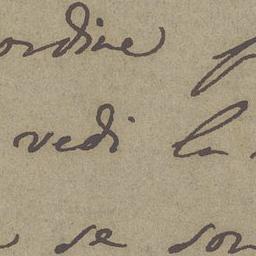 ordine
vedi la
se son